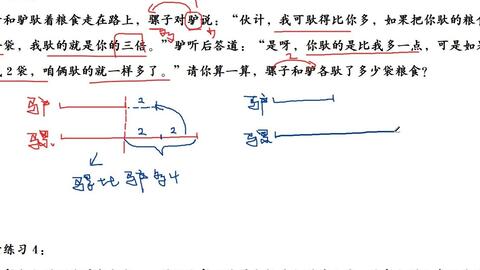 和驴驮着粮食走在路上，骡子对驴说：“伙计，我可驮得比你多，如果把你驮的粮食
袋，我驮的就是你的三倍。”驴听后答道：“是呀，你驮的是比我多一点，可是如果
2袋，咱俩驮的就一样多了。”请你算一算，骡子和驴各驮了多少袋粮食？
2
驴 2 驴
骡 2 2 骡
骡比驴多4
练习4：